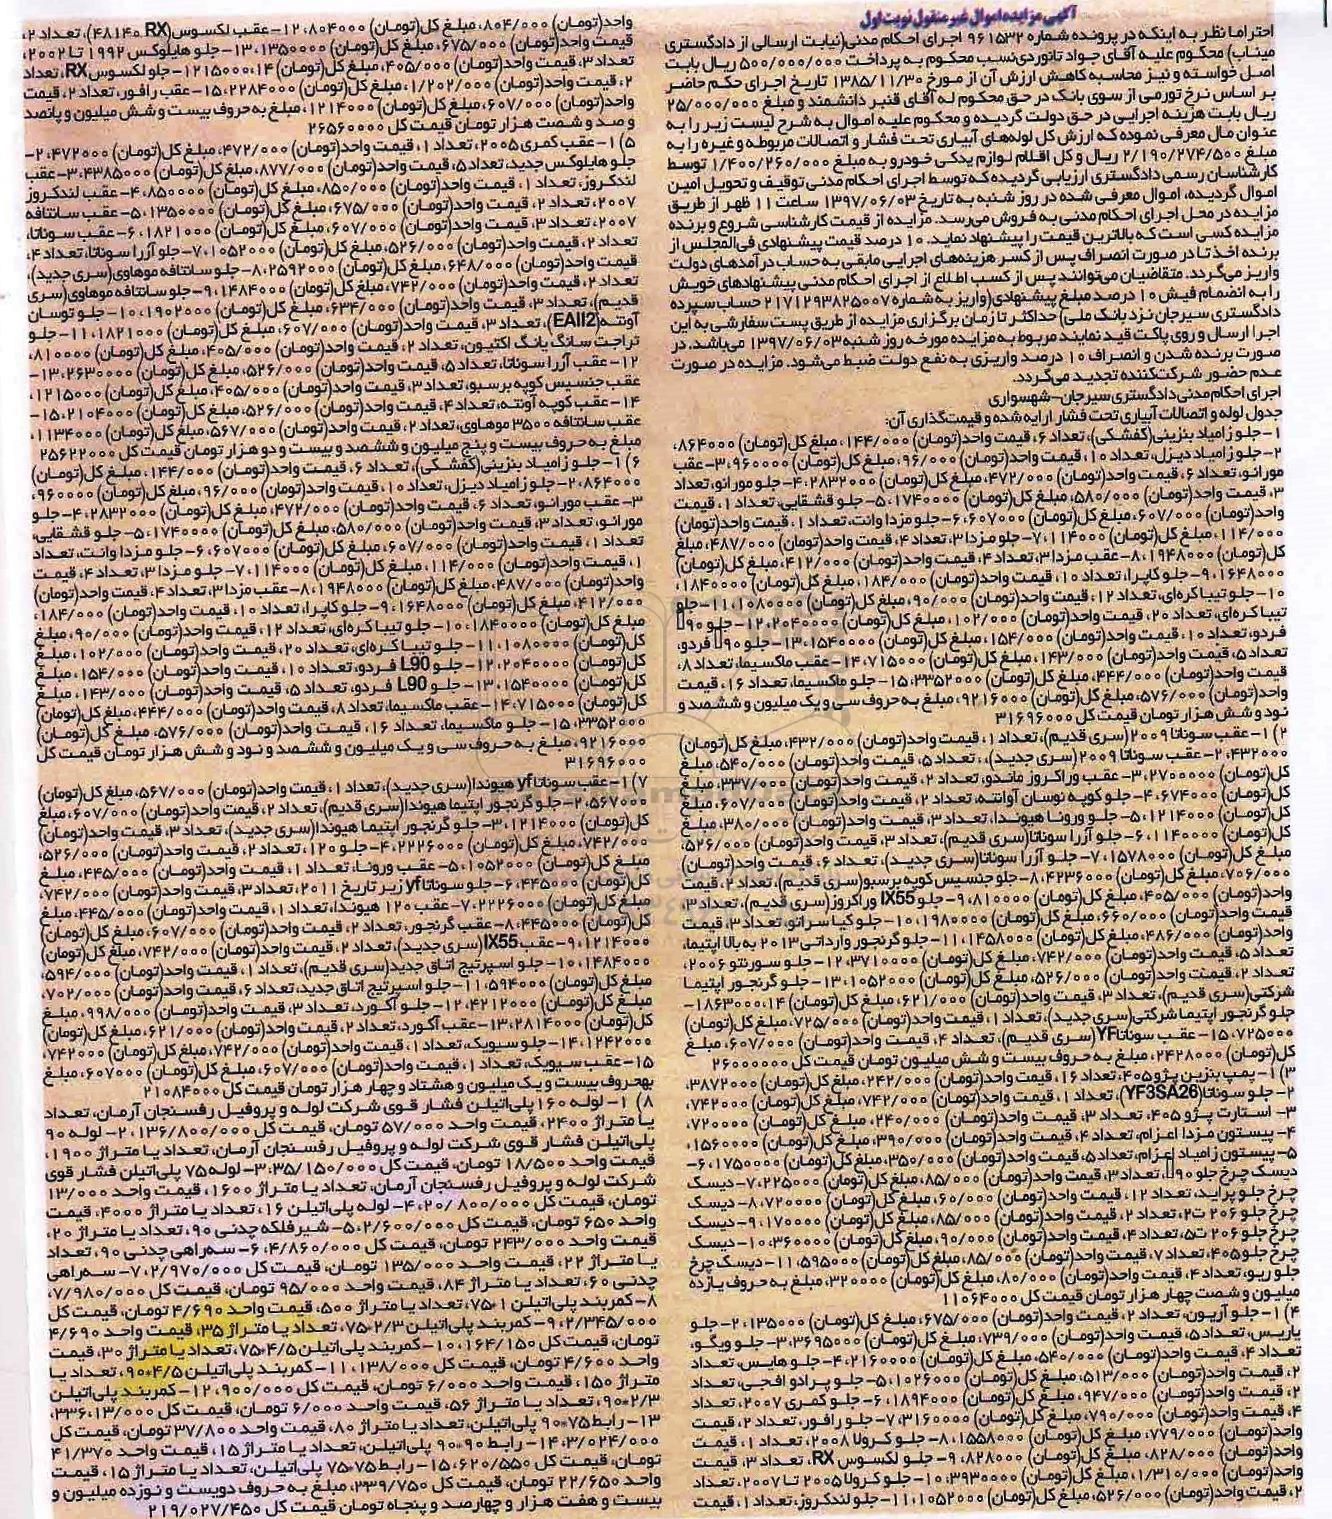 آگهی مزایده اموال غیر منقول نوبت اول
احتراما نظر به اینکه در پرونده شماره ۹۶۱۵۳۲ اجرای احکام مدنی(نیابت ارسالی از دادگستری
میناب) محکوم علیه آقای جواد تاتوردی‌نسب محکوم به پرداخت ۵۰۰/۰۰۰/۰۰۰ ریال بابت
اصل خواسته و نیز محاسبه کاهش ارزش آن از مورخ ۱۳۸۵/۱۱/۳۰ تاریخ اجرای حکم حاضر
بر اساس نرخ تورمی از سوی بانک در حق محکوم له آقای قنبر دانشمند و مبلغ ۲۵/۰۰۰/۰۰۰
ریال بابت هزینه اجرایی در حق دولت گردیده و محکوم علیه اموال به شرح لیست زیر را به
عنوان مال معرفی نموده که ارزش کل لوله‌های آبیاری تحت فشار و اتصالات مربوطه و غیره را به
مبلغ ۲/۱۹۰/۲۷۴/۵۰۰ ریال و کل اقلام لوازم یدکی خودرو به مبلغ ۱/۴۰۰/۲۶۰/۰۰۰ توسط
کارشناسان رسمی دادگستری ارزیابی گردیده که توسط اجرای احکام مدنی توقیف و تحویل امین
اموال گردیده، اموال معرفی شده در روز شنبه به تاریخ ۱۳۹۷/۰۶/۰۳ ساعت ۱۱ ظهر از طریق
مزایده در محل اجرای احکام مدنی به فروش می‌رسد. مزایده از قیمت کارشناسی شروع و برنده
مزایده کسی است که بالاترین قیمت را پیشنهاد نماید. ۱۰ درصد قیمت پیشنهادی فی‌المجلس از
برنده اخذ تا در صورت انصراف پس از کسر هزینه‌های اجرایی مابقی به حساب درآمدهای دولت
واریز می‌گردد. متقاضیان می‌توانند پس از کسب اطلاع از اجرای احکام مدنی پیشنهادهای خویش
را به انضمام فیش ۱۰ درصد مبلغ پیشنهادی(واریز به شماره ۲۱۷۱۲۹۳۸۲۵۰۰۷ حساب سپرده
دادگستری سیرجان نزد بانک ملی) حداکثر تا زمان برگزاری مزایده از طریق پست سفارشی به این
اجرا ارسال و روی پاکت قید نمایند مربوط به مزایده مورخه روز شنبه ۱۳۹۷/۰۶/۰۳ می‌باشد. در
صورت برنده شدن و انصراف ۱۰ درصد واریزی به نفع دولت ضبط می‌شود. مزایده در صورت
عدم حضور شرکت‌کننده تجدید می‌گردد.
اجرای احکام مدنی دادگستری سیرجان-شهسواری
جدول لوله و اتصالات آبیاری تحت فشار ارایه شده و قیمت‌گذاری آن:
۱-جلو زامیاد بنزینی(کفشکی)، تعداد ۶، قیمت واحد(تومان) ۱۴۴/۰۰۰، مبلغ کل(تومان) ۸۶۴۰۰۰،
۲-جلو زامیاد دیزل، تعداد ۱۰، قیمت واحد(تومان) ۹۶/۰۰۰، مبلغ کل(تومان) ۹۶۰۰۰۰، ۳-عقب
مورانو، تعداد ۶، قیمت واحد(تومان) ۴۷۲/۰۰۰، مبلغ کل(تومان) ۲۸۳۲۰۰۰، ۴-جلو مورانو، تعداد
۳، قیمت واحد(تومان) ۵۸۰/۰۰۰، مبلغ کل(تومان) ۱۷۴۰۰۰۰، ۵-جلو قشقایی، تعداد ۱، قیمت
واحد(تومان) ۶۰۷/۰۰۰، مبلغ کل(تومان) ۶۰۷۰۰۰، ۶-جلو مزدا وانت، تعداد ۱، قیمت واحد(تومان)
۱۱۴/۰۰۰، مبلغ کل(تومان) ۱۱۴۰۰۰، ۷-جلو مزدا ۳، تعداد ۴، قیمت واحد(تومان) ۴۸۷/۰۰۰، مبلغ
کل(تومان) ۱۹۴۸۰۰۰، ۸-عقب مزدا ۳، تعداد ۴، قیمت واحد(تومان) ۴۱۲/۰۰۰، مبلغ کل(تومان)
۱۶۴۸۰۰۰، ۹-جلو کاپرا، تعداد ۱۰، قیمت واحد(تومان) ۱۸۴/۰۰۰، مبلغ کل(تومان) ۱۸۴۰۰۰۰،
۱۰-جلو تیبا کره‌ای، تعداد ۱۲، قیمت واحد(تومان) ۹۰/۰۰۰، مبلغ کل(تومان) ۱۰۸۰۰۰۰، ۱۱-جلو
تیبا کره‌ای، تعداد ۲۰، قیمت واحد(تومان) ۱۰۲/۰۰۰، مبلغ کل(تومان) ۲۰۴۰۰۰۰، ۱۲-جلو ۹۰
فردو، تعداد ۱۰، قیمت واحد(تومان) ۱۵۴/۰۰۰، مبلغ کل(تومان) ۱۵۴۰۰۰۰، ۱۳-جلو ۹۰ فردو،
تعداد ۵، قیمت واحد(تومان) ۱۴۳/۰۰۰، مبلغ کل(تومان) ۷۱۵۰۰۰، ۱۴-عقب ماکسیما، تعداد ۸،
قیمت واحد(تومان) ۴۴۴/۰۰۰، مبلغ کل(تومان) ۳۳۵۲۰۰۰، ۱۵-جلو ماکسیما، تعداد ۱۶، قیمت
واحد(تومان) ۵۷۶/۰۰۰، مبلغ کل(تومان) ۹۲۱۶۰۰۰، مبلغ به حروف سی و یک میلیون و ششصد و
نود و شش هزار تومان قیمت کل ۳۱۶۹۶۰۰۰
۲) ۱-عقب سوناتا ۲۰۰۹(سری قدیم)، تعداد ۱، قیمت واحد(تومان) ۴۳۲/۰۰۰، مبلغ کل(تومان)
۴۳۲۰۰۰، ۲-عقب سوناتا ۲۰۰۹ (سری جدید)، تعداد ۵، قیمت واحد(تومان) ۵۴۰/۰۰۰، مبلغ
کل(تومان) ۲۷۰۰۰۰۰، ۳-عقب وراکروز ماندو، تعداد ۲، قیمت واحد(تومان) ۳۳۷/۰۰۰، مبلغ
کل(تومان) ۶۷۴۰۰۰، ۴-جلو کوپه نوسان آوانته، تعداد ۲، قیمت واحد(تومان) ۶۰۷/۰۰۰، مبلغ
کل(تومان) ۱۲۱۴۰۰۰، ۵-جلو ورونا هیوندا، تعداد ۳، قیمت واحد(تومان) ۳۸۰/۰۰۰، مبلغ
کل(تومان) ۱۱۴۰۰۰۰، ۶-جلو آزرا سوناتا(سری قدیم)، تعداد ۳، قیمت واحد(تومان) ۵۲۶/۰۰۰،
مبلغ کل(تومان) ۱۵۷۸۰۰۰، ۷-جلو آزرا سوناتا(سری جدید)، تعداد ۶، قیمت واحد(تومان)
۷۰۶/۰۰۰، مبلغ کل(تومان) ۴۲۳۶۰۰۰، ۸-جلو جنسیس کوپه برسبو(سری قدیم)، تعداد ۲، قیمت
واحد(تومان) ۴۰۵/۰۰۰، مبلغ کل(تومان) ۸۱۰۰۰۰، ۹-جلو IX55 وراکروز(سری قدیم)، تعداد ۳،
قیمت واحد(تومان) ۶۶۰/۰۰۰، مبلغ کل(تومان) ۱۹۸۰۰۰۰، ۱۰-جلو کیا سراتو، تعداد ۳، قیمت
واحد(تومان) ۴۸۶/۰۰۰، مبلغ کل(تومان) ۱۴۵۸۰۰۰، ۱۱-جلو گرنجور وارداتی ۲۰۱۳ به بالا اپتیما،
تعداد ۵، قیمت واحد(تومان) ۷۴۲/۰۰۰، مبلغ کل(تومان) ۳۷۱۰۰۰۰، ۱۲-جلو سورنتو ۲۰۰۶،
تعداد ۲، قیمت واحد(تومان) ۵۲۶/۰۰۰، مبلغ کل(تومان) ۱۰۵۲۰۰۰، ۱۳-جلو گرنجور اپتیما
شرکتی(سری قدیم)، تعداد ۳، قیمت واحد(تومان) ۶۲۱/۰۰۰، مبلغ کل(تومان) ۱۸۶۳۰۰۰، ۱۴-
جلو گرنجور اپتیما شرکتی(سری جدید)، تعداد ۱، قیمت واحد(تومان) ۷۲۵/۰۰۰، مبلغ کل(تومان)
۷۲۵۰۰۰، ۱۵-عقب سوناتا YF(سری قدیم)، تعداد ۴، قیمت واحد(تومان) ۶۰۷/۰۰۰، مبلغ
کل(تومان) ۲۴۲۸۰۰۰، مبلغ به حروف بیست و شش میلیون تومان قیمت کل ۲۶۰۰۰۰۰۰
۳) ۱-پمپ بنزین پژو ۴۰۵، تعداد ۱۶، قیمت واحد(تومان) ۲۴۲/۰۰۰، مبلغ کل(تومان) ۳۸۷۲۰۰۰،
۲-جلو سوناتا(YF3SA26)، تعداد ۱، قیمت واحد(تومان) ۷۴۲/۰۰۰، مبلغ کل(تومان) ۷۴۲۰۰۰،
۳-استارت پژو ۴۰۵، تعداد ۳، قیمت واحد(تومان) ۲۴۰/۰۰۰، مبلغ کل(تومان) ۷۲۰۰۰۰،
۴-پیستون مزدا اعزام، تعداد ۴، قیمت واحد(تومان) ۳۹۰/۰۰۰، مبلغ کل(تومان) ۱۵۶۰۰۰۰،
۵-پیستون زامیاد اعزام، تعداد ۵، قیمت واحد(تومان) ۳۵۰/۰۰۰، مبلغ کل(تومان) ۱۷۵۰۰۰۰، ۶-
دیسک چرخ جلو ۹۰، تعداد ۳، قیمت واحد(تومان) ۸۵/۰۰۰، مبلغ کل(تومان) ۲۲۵۰۰۰، ۷-دیسک
چرخ جلو پراید، تعداد ۱۲، قیمت واحد(تومان) ۶۰/۰۰۰، مبلغ کل(تومان) ۷۲۰۰۰۰، ۸-دیسک
چرخ جلو ۲۰۶ ت۲، تعداد ۲، قیمت واحد(تومان) ۸۵/۰۰۰، مبلغ کل(تومان) ۱۷۰۰۰۰، ۹-دیسک
چرخ جلو ۲۰۶ ت۵، تعداد ۴، قیمت واحد(تومان) ۹۰/۰۰۰، مبلغ کل(تومان) ۳۶۰۰۰۰، ۱۰-دیسک
چرخ جلو ۴۰۵، تعداد ۷، قیمت واحد(تومان) ۸۵/۰۰۰، مبلغ کل(تومان) ۵۹۵۰۰۰، ۱۱-دیسک چرخ
جلو ریو، تعداد ۴، قیمت واحد(تومان) ۸۰/۰۰۰، مبلغ کل(تومان) ۳۲۰۰۰۰، مبلغ به حروف یازده
میلیون و شصت چهار هزار تومان قیمت کل ۱۱۰۶۴۰۰۰
۴) ۱-جلو آریون، تعداد ۲، قیمت واحد(تومان) ۶۷۵/۰۰۰، مبلغ کل(تومان) ۱۳۵۰۰۰۰، ۲-جلو
یاریس، تعداد ۵، قیمت واحد(تومان) ۷۳۹/۰۰۰، مبلغ کل(تومان) ۳۶۹۵۰۰۰، ۳-جلو ویگو،
تعداد ۴، قیمت واحد(تومان) ۵۴۰/۰۰۰، مبلغ کل(تومان) ۲۱۶۰۰۰۰، ۴-جلو هایس، تعداد
۲، قیمت واحد(تومان) ۵۱۳/۰۰۰، مبلغ کل(تومان) ۱۰۲۶۰۰۰، ۵-جلو پرادو افجی، تعداد
۲، قیمت واحد(تومان) ۹۴۷/۰۰۰، مبلغ کل(تومان) ۱۸۹۴۰۰۰، ۶-جلو کمری ۲۰۰۷، تعداد
۴، قیمت واحد(تومان) ۷۹۰/۰۰۰، مبلغ کل(تومان) ۳۱۶۰۰۰۰، ۷-جلو رافور، تعداد ۲، قیمت
واحد(تومان) ۷۷۹/۰۰۰، مبلغ کل(تومان) ۱۵۵۸۰۰۰، ۸-جلو کرولا ۲۰۰۸، تعداد ۱، قیمت
واحد(تومان) ۸۲۸/۰۰۰، مبلغ کل(تومان) ۸۲۸۰۰۰، ۹-جلو لکسوس RX، تعداد ۳، قیمت
واحد(تومان) ۱/۳۱۰/۰۰۰، مبلغ کل(تومان) ۳۹۳۰۰۰۰، ۱۰-جلو کرولا ۲۰۰۵ تا ۲۰۰۷، تعداد
۲، قیمت واحد(تومان) ۵۲۶/۰۰۰، مبلغ کل(تومان) ۱۰۵۲۰۰۰، ۱۱-جلو لندکروز، تعداد ۱، قیمت
واحد(تومان) ۸۰۴/۰۰۰، مبلغ کل(تومان) ۸۰۴۰۰۰، ۱۲-عقب لکسوس(RX ۴۸۱۴۰)، تعداد ۲،
قیمت واحد(تومان) ۶۷۵/۰۰۰، مبلغ کل(تومان) ۱۳۵۰۰۰۰، ۱۳-جلو هایلوکس ۱۹۹۲ تا ۲۰۰۲،
تعداد ۳، قیمت واحد(تومان) ۴۰۵/۰۰۰، مبلغ کل(تومان) ۱۲۱۵۰۰۰، ۱۴-جلو لکسوس RX، تعداد
۲، قیمت واحد(تومان) ۱/۲۰۲/۰۰۰، مبلغ کل(تومان) ۲۲۸۴۰۰۰، ۱۵-عقب رافور، تعداد ۲، قیمت
واحد(تومان) ۶۰۷/۰۰۰، مبلغ کل(تومان) ۱۲۱۴۰۰۰، مبلغ به حروف بیست و شش میلیون و پانصد
و صد و شصت هزار تومان قیمت کل ۲۶۵۶۰۰۰۰
۵) ۱-عقب کمری ۲۰۰۵، تعداد ۱، قیمت واحد(تومان) ۴۷۲/۰۰۰، مبلغ کل(تومان) ۴۷۲۰۰۰، ۲-
جلو هایلوکس جدید، تعداد ۵، قیمت واحد(تومان) ۸۷۷/۰۰۰، مبلغ کل(تومان) ۴۳۸۵۰۰۰، ۳-عقب
لندکروز، تعداد ۱، قیمت واحد(تومان) ۸۵۰/۰۰۰، مبلغ کل(تومان) ۸۵۰۰۰۰، ۴-عقب لندکروز
۲۰۰۷، تعداد ۲، قیمت واحد(تومان) ۶۷۵/۰۰۰، مبلغ کل(تومان) ۱۳۵۰۰۰۰، ۵-عقب سانتافه
۲۰۰۷، تعداد ۳، قیمت واحد(تومان) ۶۰۷/۰۰۰، مبلغ کل(تومان) ۱۸۲۱۰۰۰، ۶-عقب سوناتا،
تعداد ۲، قیمت واحد(تومان) ۵۲۶/۰۰۰، مبلغ کل(تومان) ۱۰۵۲۰۰۰، ۷-جلو آزرا سوناتا، تعداد ۴،
قیمت واحد(تومان) ۶۴۸/۰۰۰، مبلغ کل(تومان) ۲۵۹۲۰۰۰، ۸-جلو سانتافه موهاوی(سری جدید)،
تعداد ۲، قیمت واحد(تومان) ۷۴۲/۰۰۰، مبلغ کل(تومان) ۱۴۸۴۰۰۰، ۹-جلو سانتافه موهاوی(سری
قدیم)، تعداد ۳، قیمت واحد(تومان) ۶۳۴/۰۰۰، مبلغ کل(تومان) ۱۹۰۲۰۰۰، ۱۰-جلو توسان
آونته(EAII2)، تعداد ۳، قیمت واحد(تومان) ۶۰۷/۰۰۰، مبلغ کل(تومان) ۱۸۲۱۰۰۰، ۱۱-جلو
تراجت سانگ یانگ اکتیون، تعداد ۲، قیمت واحد(تومان) ۴۰۵/۰۰۰، مبلغ کل(تومان) ۸۱۰۰۰۰،
۱۲-عقب آزرا سوناتا، تعداد ۵، قیمت واحد(تومان) ۵۲۶/۰۰۰، مبلغ کل(تومان) ۲۶۳۰۰۰۰، ۱۳-
عقب جنسیس کوپه برسبو، تعداد ۳، قیمت واحد(تومان) ۴۰۵/۰۰۰، مبلغ کل(تومان) ۱۲۱۵۰۰۰،
۱۴-عقب کوپه آونته، تعداد ۴، قیمت واحد(تومان) ۵۲۶/۰۰۰، مبلغ کل(تومان) ۲۱۰۴۰۰۰، ۱۵-
عقب سانتافه ۳۵۰۰ موهاوی، تعداد ۲، قیمت واحد(تومان) ۵۶۷/۰۰۰، مبلغ کل(تومان) ۱۱۳۴۰۰۰
مبلغ به حروف بیست و پنج میلیون و ششصد و بیست و دو هزار تومان قیمت کل ۲۵۶۲۲۰۰۰
۶) ۱-جلو زامیاد بنزینی(کفشکی)، تعداد ۶، قیمت واحد(تومان) ۱۴۴/۰۰۰، مبلغ کل(تومان)
۸۶۴۰۰۰، ۲-جلو زامیاد دیزل، تعداد ۱۰، قیمت واحد(تومان) ۹۶/۰۰۰، مبلغ کل(تومان) ۹۶۰۰۰۰،
۳-عقب مورانو، تعداد ۶، قیمت واحد(تومان) ۴۷۲/۰۰۰، مبلغ کل(تومان) ۲۸۳۲۰۰۰، ۴-جلو
مورانو، تعداد ۳، قیمت واحد(تومان) ۵۸۰/۰۰۰، مبلغ کل(تومان) ۱۷۴۰۰۰۰، ۵-جلو قشقایی،
تعداد ۱، قیمت واحد(تومان) ۶۰۷/۰۰۰، مبلغ کل(تومان) ۶۰۷۰۰۰، ۶-جلو مزدا وانت، تعداد
۱، قیمت واحد(تومان) ۱۱۴/۰۰۰، مبلغ کل(تومان) ۱۱۴۰۰۰، ۷-جلو مزدا ۳، تعداد ۴، قیمت
واحد(تومان) ۴۸۷/۰۰۰، مبلغ کل(تومان) ۱۹۴۸۰۰۰، ۸-عقب مزدا ۳، تعداد ۴، قیمت واحد(تومان)
۴۱۲/۰۰۰، مبلغ کل(تومان) ۱۶۴۸۰۰۰، ۹-جلو کاپرا، تعداد ۱۰، قیمت واحد(تومان) ۱۸۴/۰۰۰،
مبلغ کل(تومان) ۱۸۴۰۰۰۰، ۱۰-جلو تیبا کره‌ای، تعداد ۱۲، قیمت واحد(تومان) ۹۰/۰۰۰، مبلغ
کل(تومان) ۱۰۸۰۰۰۰، ۱۱-جلو تیبا کره‌ای، تعداد ۲۰، قیمت واحد(تومان) ۱۰۲/۰۰۰، مبلغ
کل(تومان) ۲۰۴۰۰۰۰، ۱۲-جلو L90 فردو، تعداد ۱۰، قیمت واحد(تومان) ۱۵۴/۰۰۰، مبلغ
کل(تومان) ۱۵۴۰۰۰۰، ۱۳-جلو L90 فردو، تعداد ۵، قیمت واحد(تومان) ۱۴۳/۰۰۰، مبلغ
کل(تومان) ۷۱۵۰۰۰، ۱۴-عقب ماکسیما، تعداد ۸، قیمت واحد(تومان) ۴۴۴/۰۰۰، مبلغ کل(تومان)
۳۳۵۲۰۰۰، ۱۵-جلو ماکسیما، تعداد ۱۶، قیمت واحد(تومان) ۵۷۶/۰۰۰، مبلغ کل(تومان)
۹۲۱۶۰۰۰، مبلغ به حروف سی و یک میلیون و ششصد و نود و شش هزار تومان قیمت کل
۳۱۶۹۶۰۰۰
۷) ۱-عقب سوناتا yf هیوندا(سری جدید)، تعداد ۱، قیمت واحد(تومان) ۵۶۷/۰۰۰، مبلغ کل(تومان)
۵۶۷۰۰۰، ۲-جلو گرنجور اپتیما هیوندا(سری قدیم)، تعداد ۲، قیمت واحد(تومان) ۶۰۷/۰۰۰، مبلغ
کل(تومان) ۱۲۱۴۰۰۰، ۳-جلو گرنجور اپتیما هیوندا(سری جدید)، تعداد ۳، قیمت واحد(تومان)
۷۴۲/۰۰۰، مبلغ کل(تومان) ۲۲۲۶۰۰۰، ۴-جلو ۱۲۰، تعداد ۲، قیمت واحد(تومان) ۵۲۶/۰۰۰،
مبلغ کل(تومان) ۱۰۵۲۰۰۰، ۵-عقب ورونا، تعداد ۱، قیمت واحد(تومان) ۴۴۵/۰۰۰، مبلغ
کل(تومان) ۴۴۵۰۰۰، ۶-جلو سوناتا yf زیر تاریخ ۲۰۱۱، تعداد ۳، قیمت واحد(تومان) ۷۴۲/۰۰۰،
مبلغ کل(تومان) ۲۲۲۶۰۰۰، ۷-عقب ۱۲۰ هیوندا، تعداد ۱، قیمت واحد(تومان) ۴۴۵/۰۰۰، مبلغ
کل(تومان) ۴۴۵۰۰۰، ۸-عقب گرنجور، تعداد ۲، قیمت واحد(تومان) ۶۰۷/۰۰۰، مبلغ کل(تومان)
۱۲۱۴۰۰۰، ۹-عقب IX55(سری جدید)، تعداد ۲، قیمت واحد(تومان) ۷۴۲/۰۰۰، مبلغ کل(تومان)
۱۴۸۴۰۰۰، ۱۰-جلو اسپرتیج اتاق جدید(سری قدیم)، تعداد ۱، قیمت واحد(تومان) ۵۹۴/۰۰۰،
مبلغ کل(تومان) ۵۹۴۰۰۰، ۱۱-جلو اسپرتیج اتاق جدید، تعداد ۶، قیمت واحد(تومان) ۷۰۲/۰۰۰،
مبلغ کل(تومان) ۴۲۱۲۰۰۰، ۱۲-جلو آکورد، تعداد ۳، قیمت واحد(تومان) ۹۹۸/۰۰۰، مبلغ
کل(تومان) ۲۸۱۴۰۰۰، ۱۳-عقب آکورد، تعداد ۲، قیمت واحد(تومان) ۶۲۱/۰۰۰، مبلغ کل(تومان)
۱۲۴۲۰۰۰، ۱۴-جلو سیویک، تعداد ۱، قیمت واحد(تومان) ۷۴۲/۰۰۰، مبلغ کل(تومان) ۷۴۲۰۰۰،
۱۵-عقب سیویک، تعداد ۱، قیمت واحد(تومان) ۶۰۷/۰۰۰، مبلغ کل(تومان) ۶۰۷۰۰۰، مبلغ
بهحروف بیست و یک میلیون و هشتاد و چهار هزار تومان قیمت کل ۲۱۰۸۴۰۰۰
۸) ۱-لوله ۱۶۰ پلی‌اتیلن فشار قوی شرکت لوله و پروفیل رفسنجان آرمان، تعداد
یا متراژ ۲۴۰۰، قیمت واحد ۵۷/۰۰۰ تومان، قیمت کل ۱۳۶/۸۰۰/۰۰۰، ۲-لوله ۹۰
پلی‌اتیلن فشار قوی شرکت لوله و پروفیل رفسنجان آرمان، تعداد یا متراژ ۱۹۰۰،
قیمت واحد ۱۸/۵۰۰ تومان، قیمت کل ۳۵/۱۵۰/۰۰۰، ۳-لوله ۷۵ پلی‌اتیلن فشار قوی
شرکت لوله و پروفیل رفسنجان آرمان، تعداد یا متراژ ۱۶۰۰، قیمت واحد ۱۳/۰۰۰
تومان، قیمت کل ۲۰/۸۰۰/۰۰۰، ۴-لوله پلی‌اتیلن ۱۶، تعداد یا متراژ ۴۰۰۰، قیمت
واحد ۶۵۰ تومان، قیمت کل ۲/۶۰۰/۰۰۰، ۵-شیر فلکه چدنی ۹۰، تعداد یا متراژ ۲۰،
قیمت واحد ۲۴۳/۰۰۰ تومان، قیمت کل ۴/۸۶۰/۰۰۰، ۶-سه‌راهی چدنی ۹۰، تعداد
یا متراژ ۲۲، قیمت واحد ۱۳۵/۰۰۰ تومان، قیمت کل ۲/۹۷۰/۰۰۰، ۷-سه‌راهی
چدنی ۶۰، تعداد یا متراژ ۸۴، قیمت واحد ۹۵/۰۰۰ تومان، قیمت کل ۷/۹۸۰/۰۰۰،
۸-کمربند پلی‌اتیلن ۱*۷۵، تعداد یا متراژ ۵۰۰، قیمت واحد ۴/۶۹۰ تومان، قیمت کل
۲/۳۴۵/۰۰۰، ۹-کمربند پلی‌اتیلن ۲/۳*۷۵، تعداد یا متراژ ۳۵، قیمت واحد ۴/۶۹۰
تومان، قیمت کل ۱۶۴/۱۵۰، ۱۰-کمربند پلی‌اتیلن ۴/۵*۷۵، تعداد یا متراژ ۳۰، قیمت
واحد ۴/۶۰۰ تومان، قیمت کل ۱۳۸/۰۰۰، ۱۱-کمربند پلی‌اتیلن ۴/۵*۹۰، تعداد یا
متراژ ۱۵۰، قیمت واحد ۶/۰۰۰ تومان، قیمت کل ۹۰۰/۰۰۰، ۱۲-کمربند پلی‌اتیلن
۲/۳*۹۰، تعداد یا متراژ ۵۶، قیمت واحد ۶/۰۰۰ تومان، قیمت کل ۳۳۶،۱۳/۰۰۰،
۱۳-رابط ۷۵*۹۰ پلی‌اتیلن، تعداد یا متراژ ۸۰، قیمت واحد ۳۷/۸۰۰ تومان، قیمت کل
۳/۰۲۴/۰۰۰، ۱۴-رابط ۹۰*۹۰ پلی‌اتیلن، تعداد یا متراژ ۱۵، قیمت واحد ۴۱/۳۷۰
تومان، قیمت کل ۶۲۰/۵۵۰، ۱۵-رابط ۷۵*۷۵ پلی‌اتیلن، تعداد یا متراژ ۱۵، قیمت
واحد ۲۲/۶۵۰ تومان، قیمت کل ۳۳۹/۷۵۰، مبلغ به حروف دویست و نوزده میلیون و
بیست و هفت هزار و چهارصد و پنجاه تومان قیمت کل ۲۱۹/۰۲۷/۴۵۰